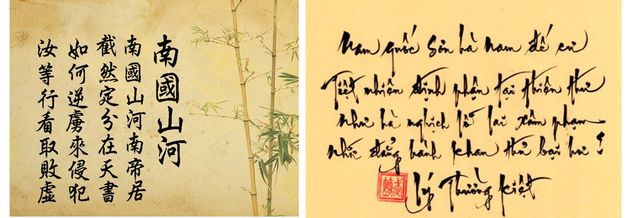 南國山河
南國山河南帝居
截然定分在天書
如何逆虜來侵犯
汝等行看取敗虛
Nam quốc sơn hà Nam đế cư
Tiệt nhiên định phận tại thiên thư
Như hà nghịch lỗ lai xâm phạm
Nhữ đẳng hành khan thủ bại hư!
Lý Thường Kiệt